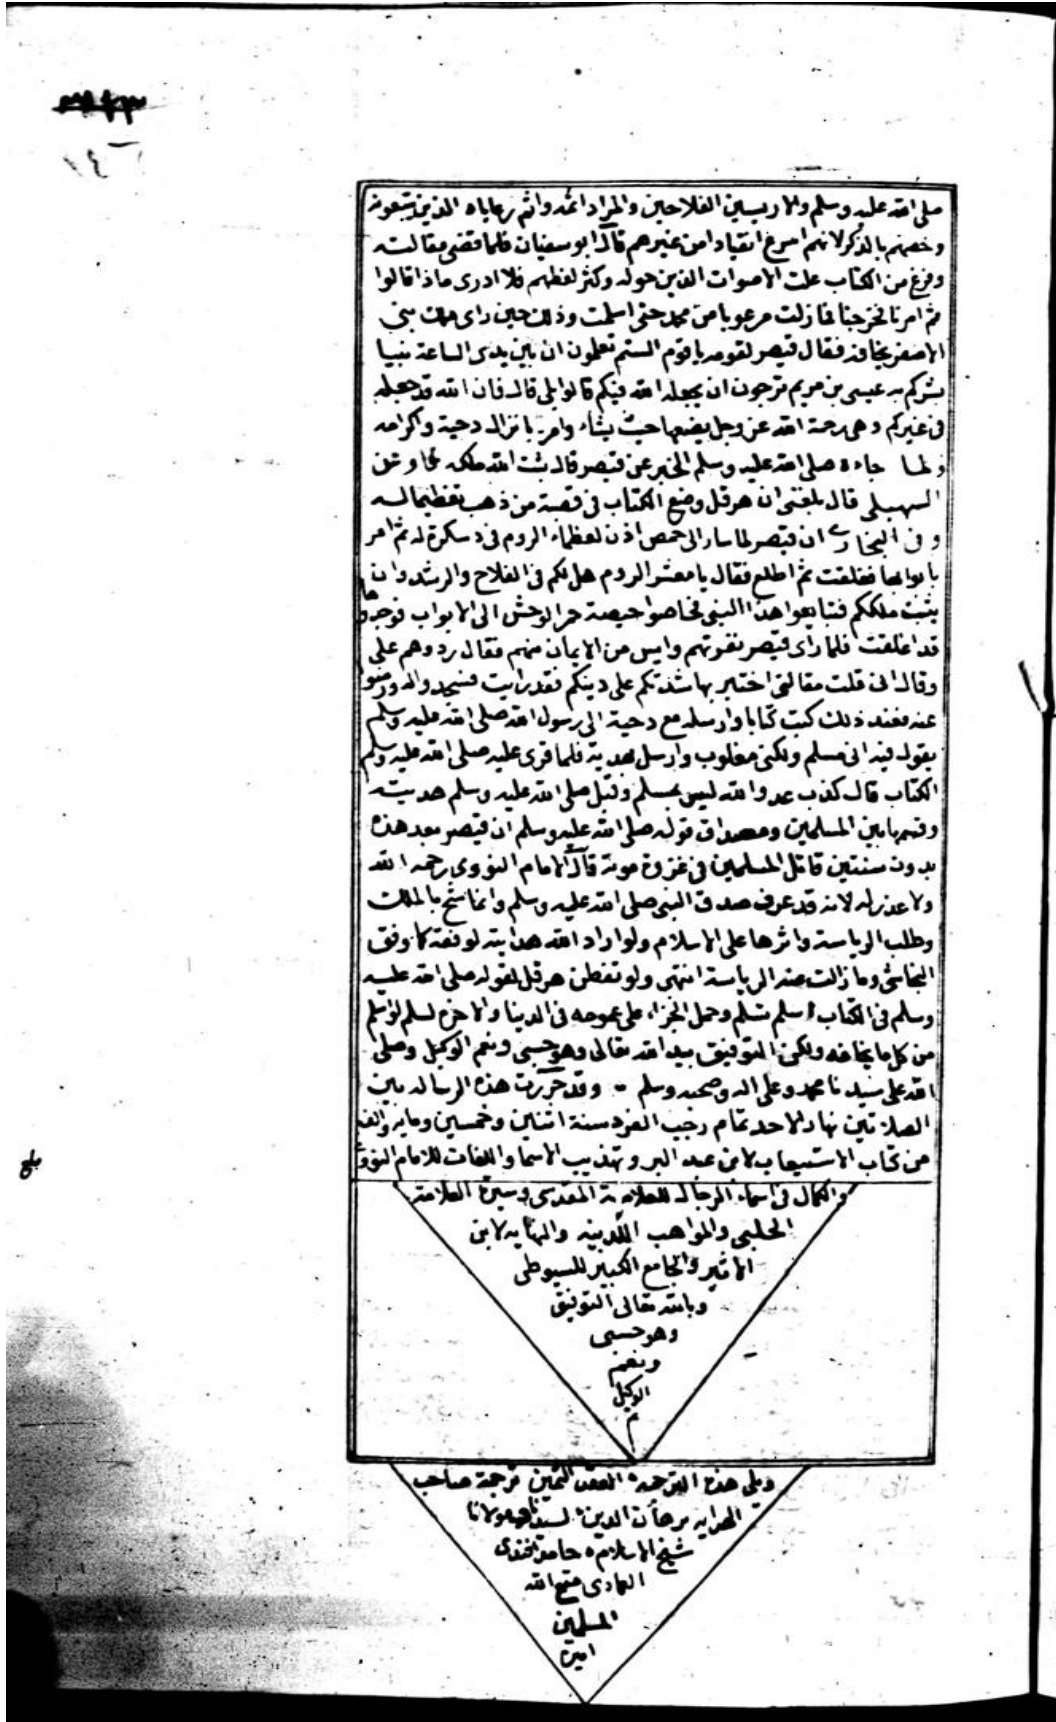 ١٤٦
صلى الله عليه وسلم والاريسين الفلاحين والمراد اثمه واثم رعاياه الذين يتبعونه
وخصهم بالذكر لانهم اسرع انقيادا من غيرهم قال ابو سفيان فلما قضى مقالته
وفرغ من الكتاب علت الاصوات الذين حوله وكثر لغطهم فلا ادرى ماذا قالوا
ثم امر بنا فخرجنا فما زلت مرعوبا من محمد حتى اسلمت وذلك حين راى ملك بنى
الاصفر يخافه فقال قيصر لقومه يا قوم الستم تعلمون ان بين يدى الساعة نبيا
بشركم به عيسى بن مريم ترجون ان يجعله الله فيكم قالوا بلى قال فان الله قد جعله
فى غيركم وهى رحمة الله عز وجل يضعها حيث يشاء وامر بانزال دحية واكرامه
ولما جاءه صلى الله عليه وسلم الخبر عن قيصر قال ثبت الله ملكه وعن
السهيلى قال بلغنى ان هرقل وضع الكتاب فى قصبة من ذهب تعظيما له
وفى البخارى ان قيصر لما سار الى حمص اذن لعظماء الروم فى دسكرة له ثم امر
بابوابها فغلقت ثم اطلع فقال يا معشر الروم هل لكم فى الفلاح والرشد وان
يثبت ملككم فتبايعوا هذا النبى فحاصوا حيصة حمر الوحش الى الابواب فوجدوها
قد اغلقت فلما راى قيصر نفرتهم وايس من الايمان منهم فقال ردوهم على
وقال انى قلت مقالتى اختبر بها شدتكم على دينكم فقد رايت فسجدوا له ورضوا
عنه فعند ذلك كتب كتابا وارسله مع دحية الى رسول الله صلى الله عليه وسلم
يقول فيه انى مسلم ولكنى مغلوب وارسل بهدية فلما قرى عليه صلى الله عليه وسلم
الكتاب قال كذب عدو الله ليس بمسلم وقبل صلى الله عليه وسلم هديته
وقسمها بين المسلمين ومصداق قوله صلى الله عليه وسلم ان قيصر بعد هذه
بدون سنتين قاتل المسلمين فى غزوة موتة قال الامام النووى رحمه الله
ولا عذر له لانه قد عرف صدق النبى صلى الله عليه وسلم وانما شح بالملك
وطلب الرياسة واثرها على الاسلام ولو اراد الله هدايته لوفقه كما وفق
النجاشى وما زالت عنه الرياسة انتهى ولو تفطن هرقل لقوله صلى الله عليه
وسلم فى الكتاب اسلم تسلم وحمل الجزاء على عمومه فى الدنيا والاخرة لسلم لو اسلم
من كل ما يخافه ولكن التوفيق بيد الله تعالى وهو حسبى ونعم الوكيل وصلى
الله على سيدنا محمد وعلى اله وصحبه وسلم وقد حررت هذه الرسالة بين
الصلاتين نهار الاحد تمام رجب الفرد سنة اثنين وخمسين وماية والف
من كتاب الاستيعاب لابن عبد البر وتهذيب الاسما واللغات للامام النووى
والكمال فى اسماء الرجال للعلامة المقدسى وسيرة العلامة
الحلبى والمواهب اللدنيه والنهايه لابن
الاثير والجامع الكبير للسيوطى
وبالله تعالى التوفيق
وهو حسبى
ونعم
الوكيل
م
ويلى هذه الترجمة العقد الثمين ترجمة صاحب
الهدايه برهان الدين لسيدنا ومولانا
شيخ الاسلام حامد افندى
العمادى متع الله
المسلمين
امين
بلغ